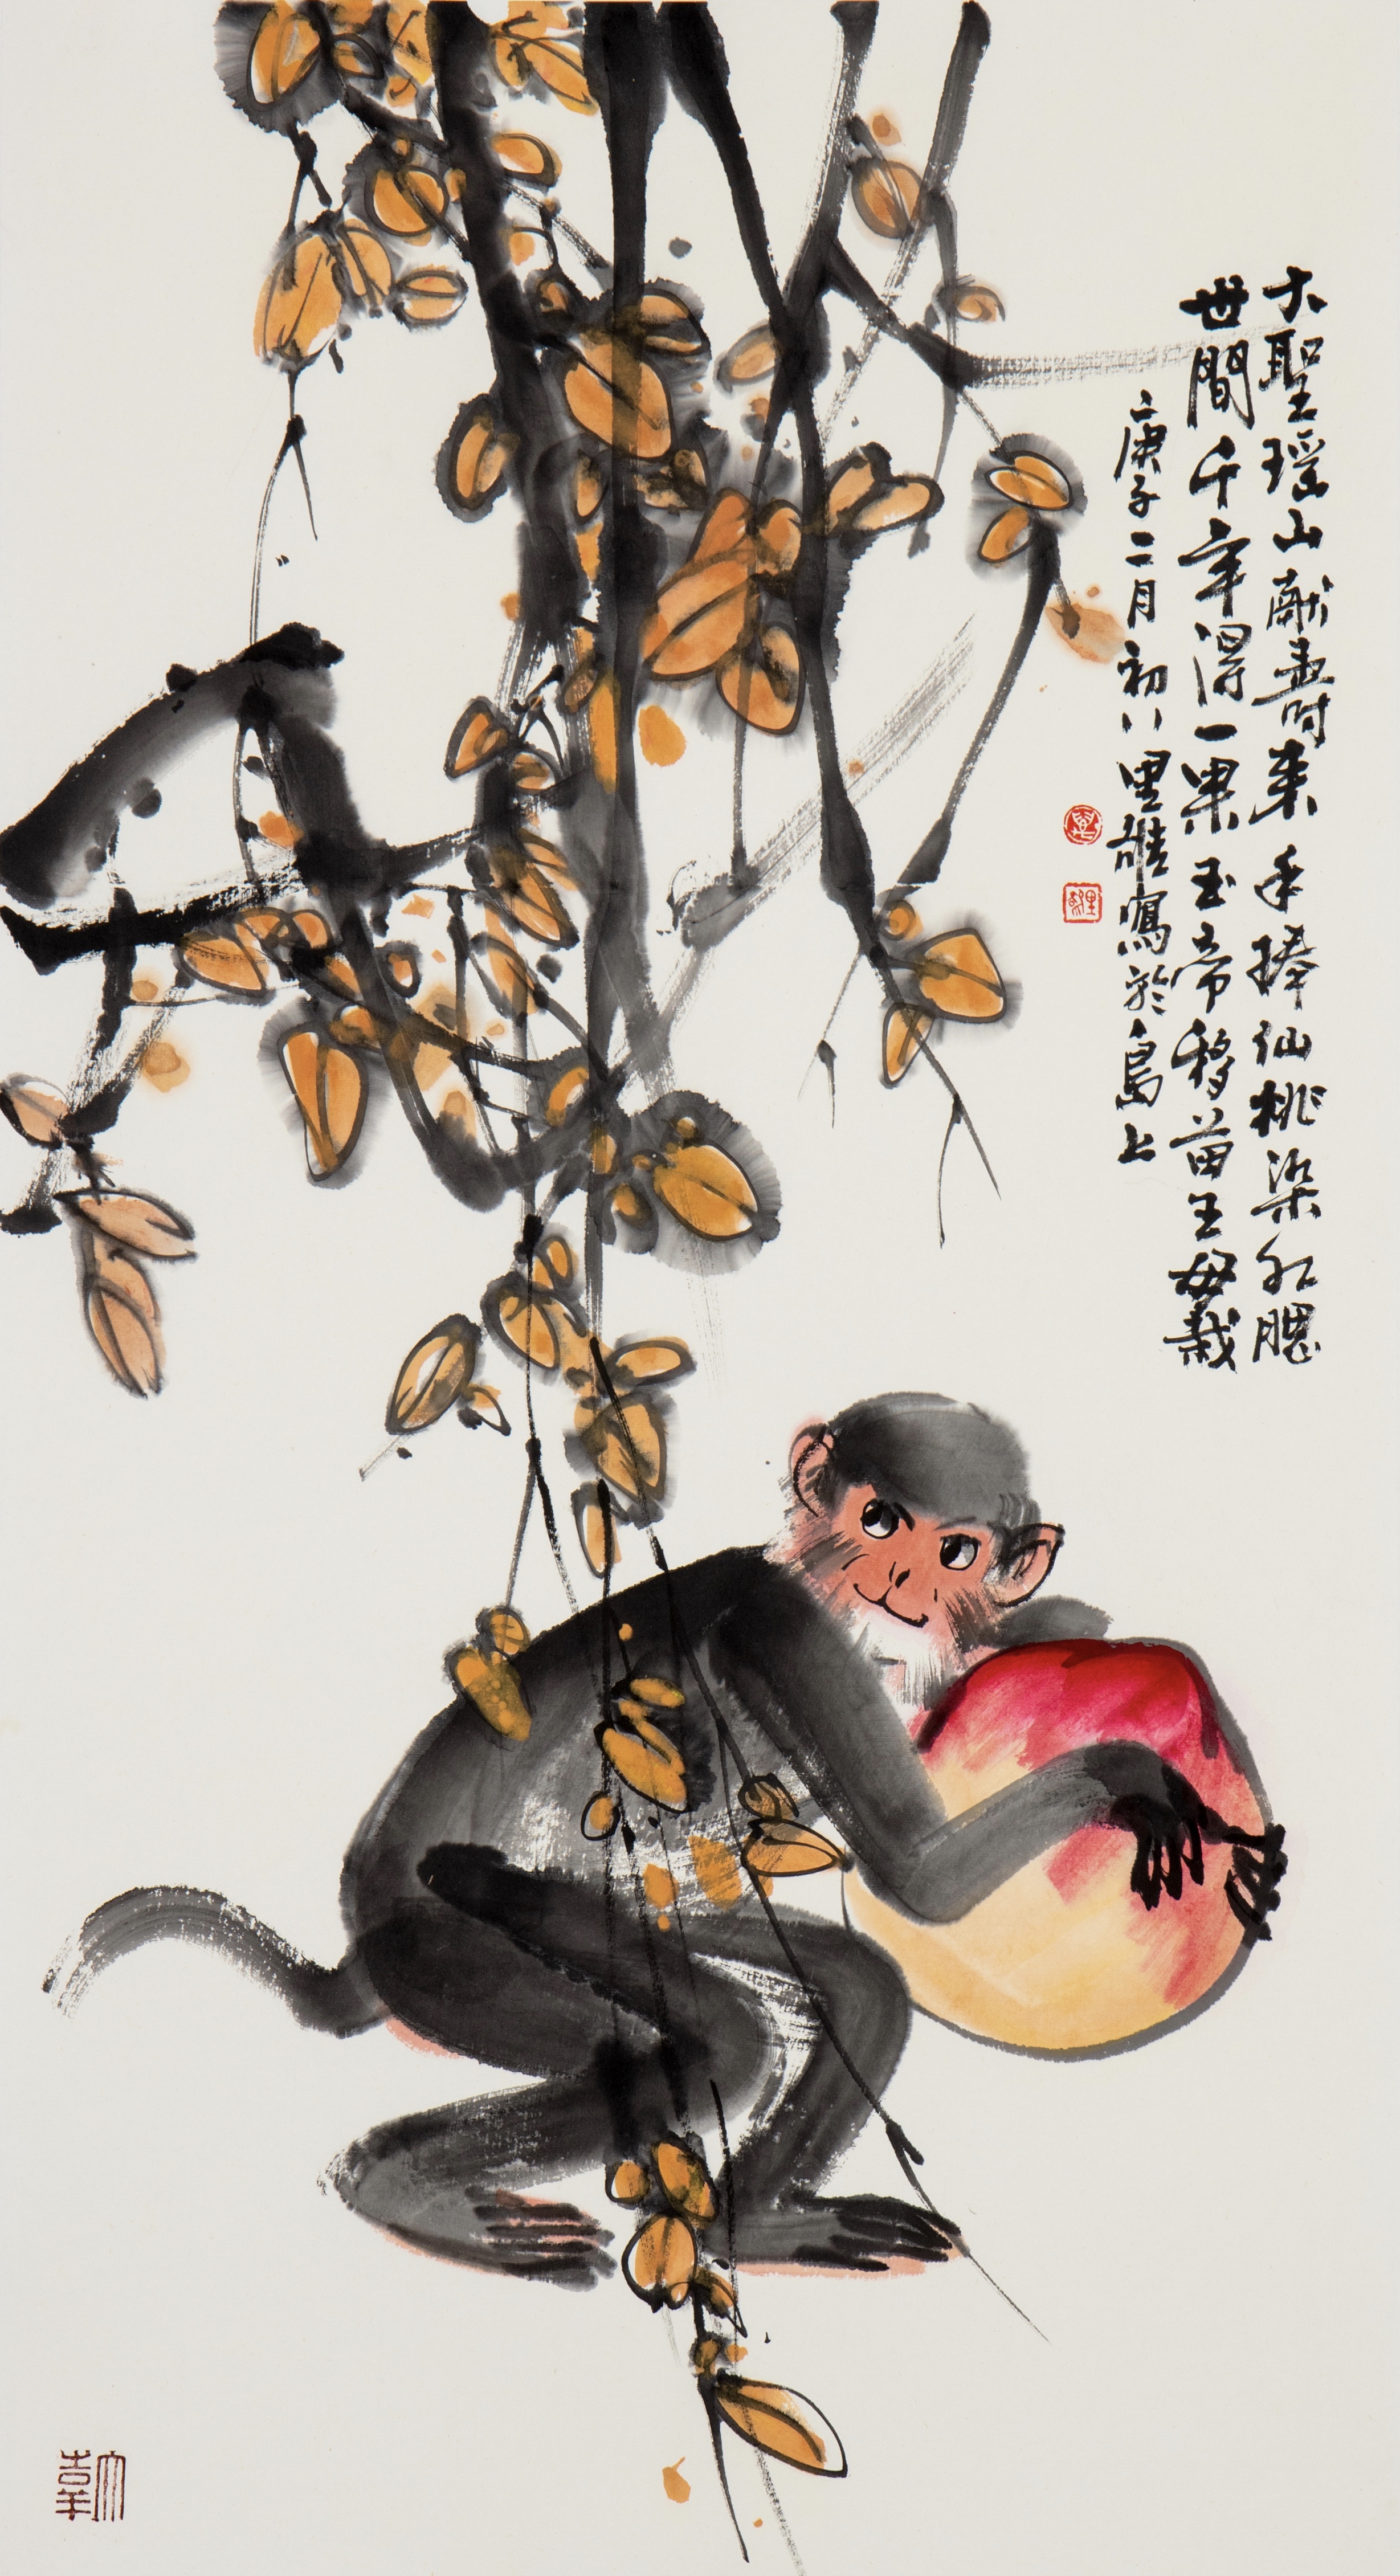 大聖瑶山献壽来手捧仙桃染紅腮
世間千年得一果玉帝移苗王母栽
庚子二月初八里雄寫於島上
大吉羊